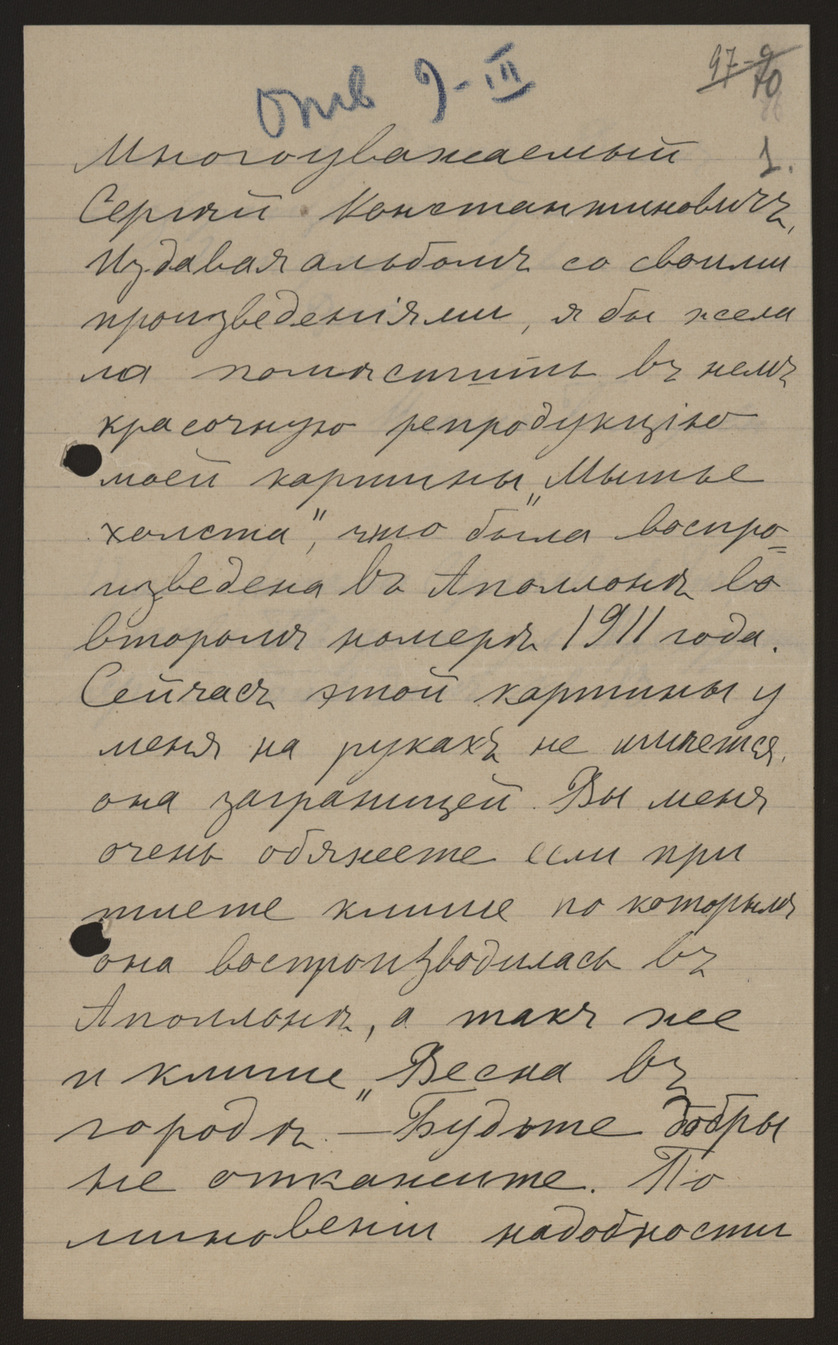 отв 9-III
97-9
70
1.
Многоуважаемый
Сергѣй Константиновичъ,
Издавая альбомъ со своими
произведенiями, я бы жела
ла помѣстить въ немъ
красочную репродукцiю
моей картины „Мытье
холста", что была воспро=
изведена въ Аполлонѣ во
второмъ номерѣ 1911 года.
Сейчасъ этой картины у
меня на рукахъ не имѣется,
она заграницей. Вы меня
очень обяжете если при
шлете клише по которымъ
она воспроизводилась въ
Аполлонѣ, а такъ же
и клише „Весна въ
городѣ. — Будьте добры
не откажите. По
миновенiи надобности